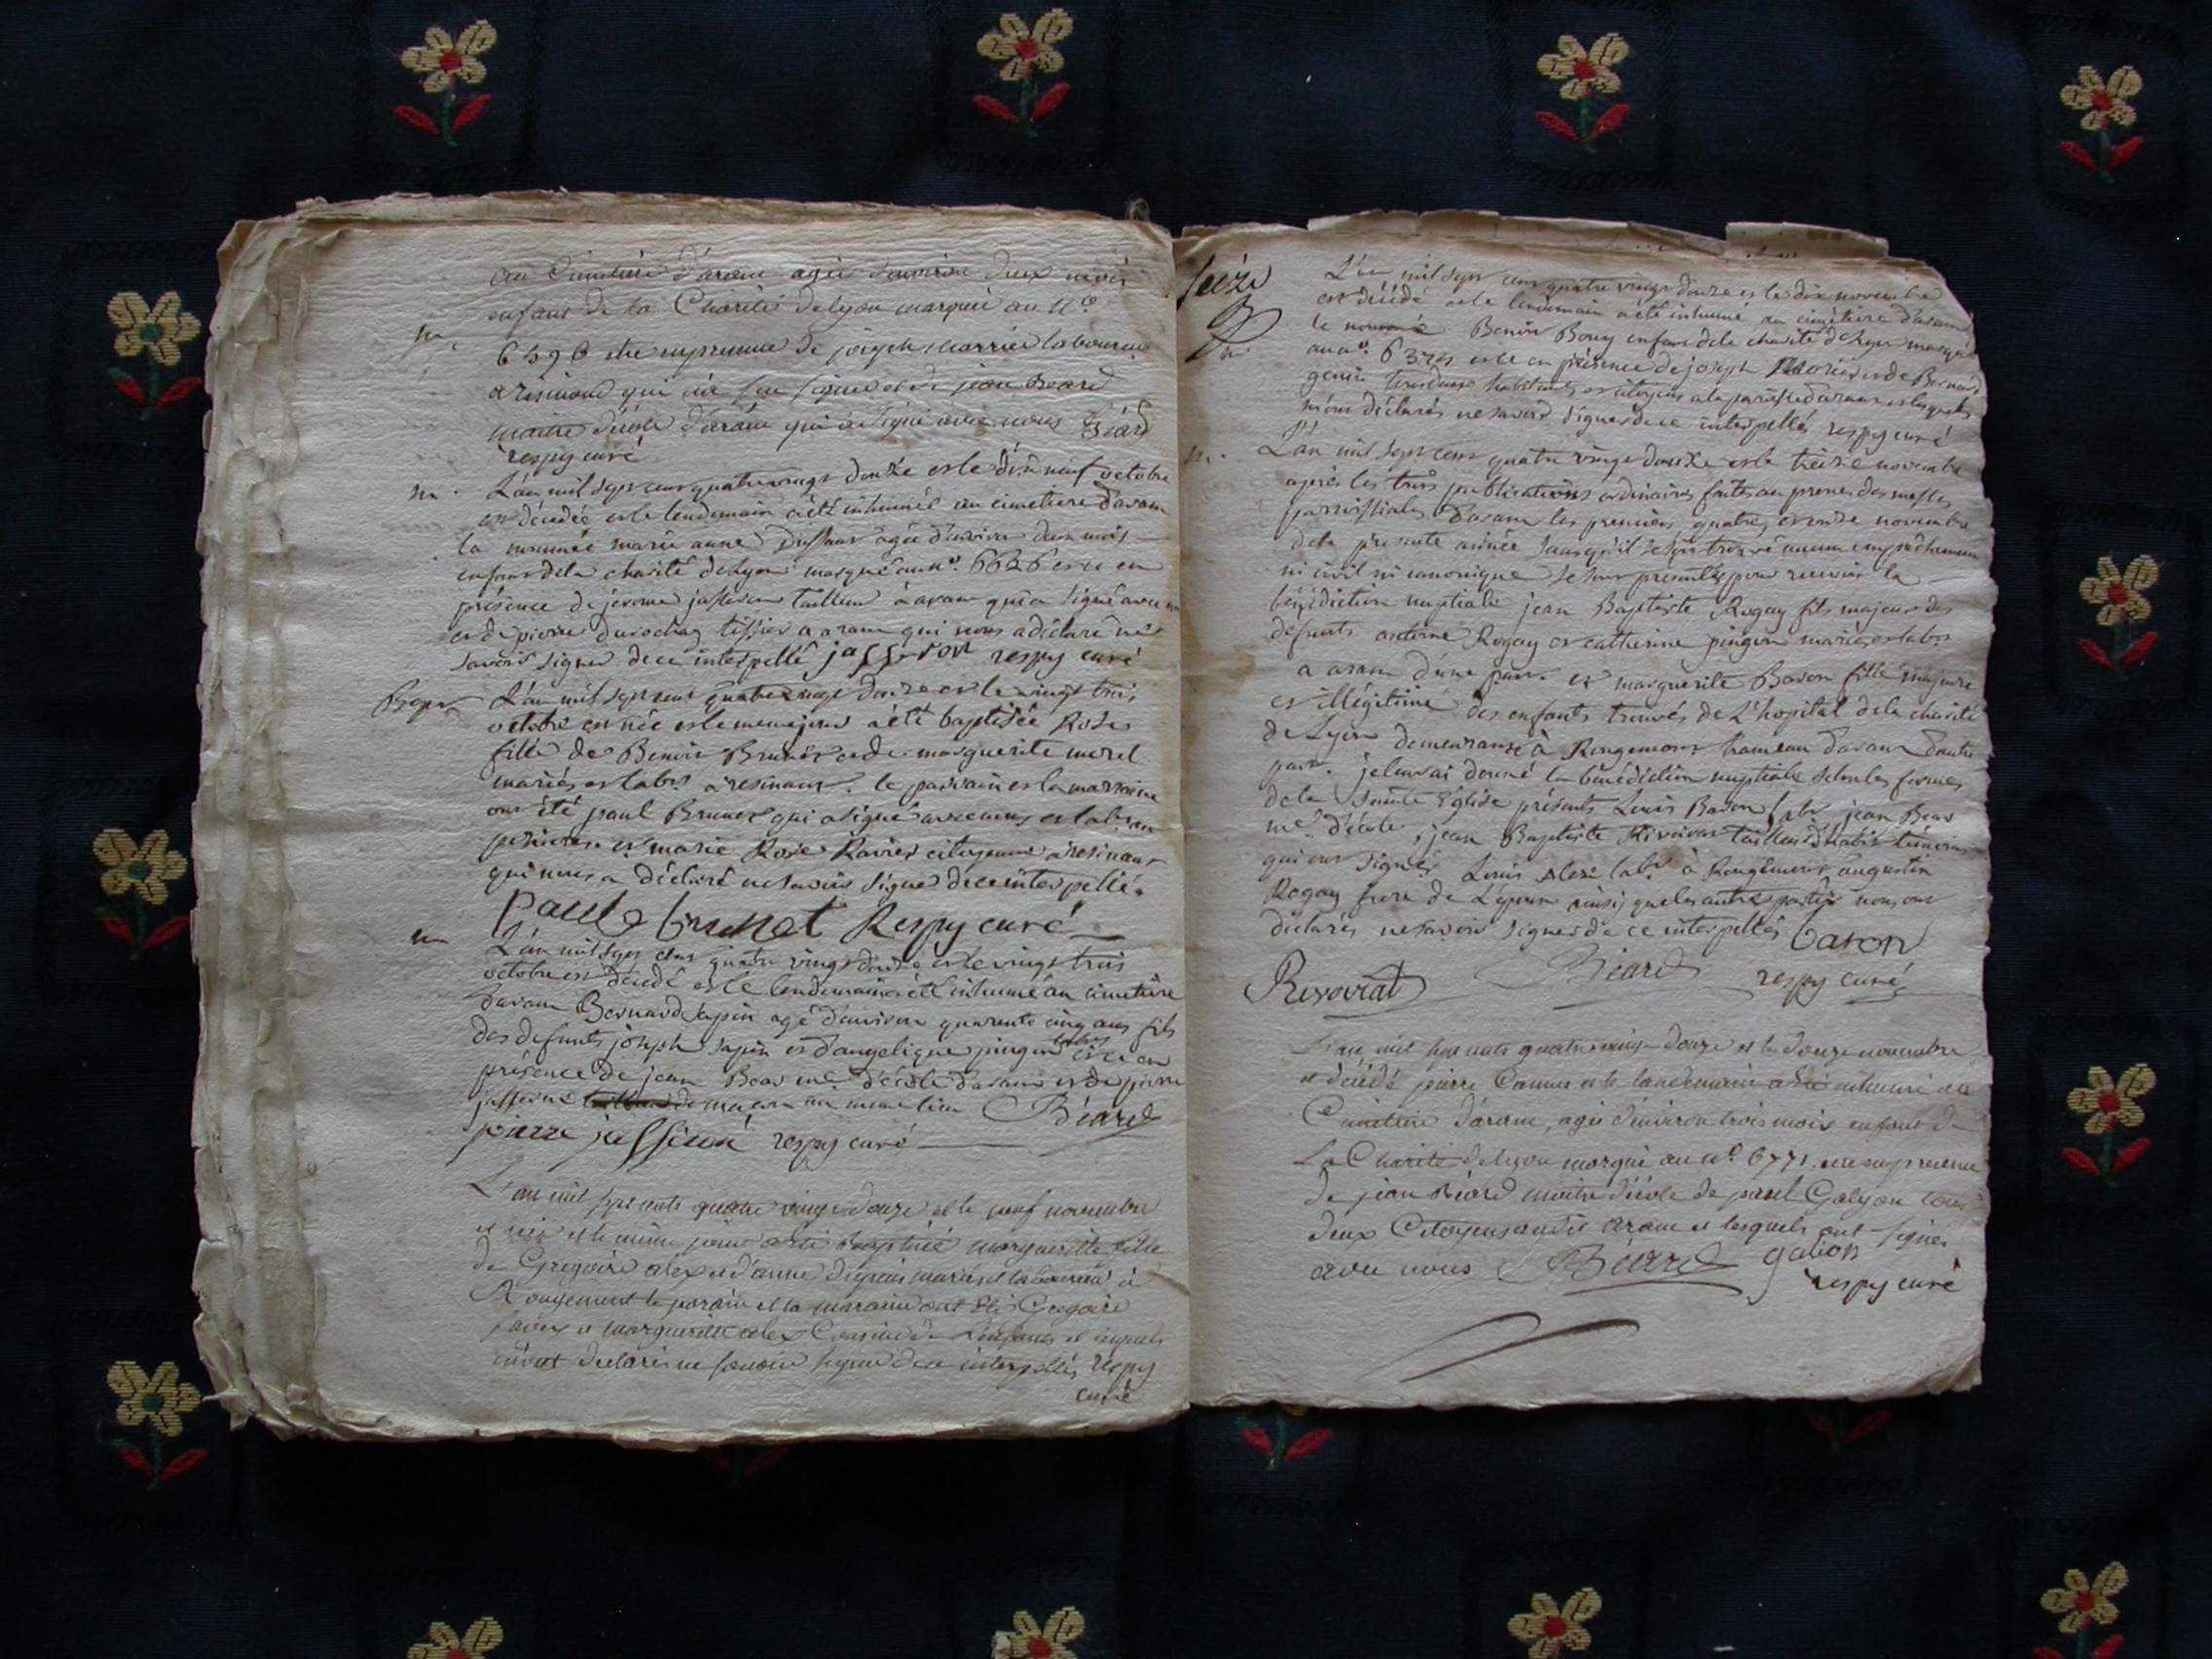 au Cimetiere d'arane agée d'environ deux mois
enfant de la Charité de lyon marquée au N.º
m.
6596 et ce en presence de joseph
a resinand qui n'a seu signer et de jean Beard
maitre d'école d'arane qui a signé avec nous Béard
respy curé
m. L'an mil sept cent quatre vingt douze et le dix neuf octobre
est décédée et le lendemain a été inhumée au cimetiere d'aram
la nommée marie anne agée d'environ deux mois
enfant de la charité de Lyon marqué au n.º 6626 et ce en
présence de jerome jasseron tailleur à aram qui a signé avec
et de pierre durochas tissier a aram qui nous a déclaré ne
savoir signer de ce interpellé jasseron respy curé
Bap. L'an mil sept cent quatre vingt douze et le vingt trois
octobre est née et le meme jour a été baptisée Rose
fille de Benoit Brunet et de marguerite morel
mariés et labrs a resinant. le parrain et la marraine
ont été paul Brunet qui a signé avec nous et lab.
et marie Rose Ravier citoyenne à resinant
qui nous a déclaré ne savoir signer de ce interpellé.
Paul brunet Respy curé
m L'an mil sept cent quatre vingt douze et le vingt trois
octobre est décédé et le lendemain a été inhumé au cimetiere
d'aram Bernard Sapin agé d'environ quarante cinq ans fils
des defunts joseph Sapin et d'angelique pingon et ce en
présence de jean Bear me. d'école d'aram et de pierre
jasseron maçon au meme lieu Béard
pierre jasseron respy curé
L'an mil sept cents quatre vingt douze et le neuf novembre
est née et le même jour a été baptisée marguerite fille
de Gregoire alex et d'anne mariés et laboureurs à
Rougemont le parain et la maraine ont étés Gregoire
et marguerite alex Cousine de L'enfant et lesquels
m'ont declarés ne savoir signer de ce interpellés respy
curé
seize
L'an mil sept cent quatre vingt douze et le dix novembre
est décédé et le lendemain a été inhumé au cimetiere d'aram
le nommé Benoit Bony enfant de la charité de Lyon marqué
m.
au n.º et ce en présence de joseph et de Bernard
genin habitants et citoyens de la paroisse d'aram et lesquels
m'ont déclarés ne savoir signer de ce interpellés respy curé
m. L'an mil sept cent quatre vingt douze et le treize novembre
après les trois publications ordinaires faites au prone des messes
parroissiales d'aram les premier, quatre, et onze novembre
de la presente année sans qu'il se soit trouvé aucun empechement
ni civil ni canonique se sont presentés pour recevoir la
bénédiction nuptiale jean Baptiste Rogay fils majeur des
défunts antoine Rogay et catherine pingon mariés et labrs
a aram d'une part et marguerite Baron fille majeure
et illégitime des enfants trouvés de L'hopital de la charité
de Lyon demeurante à Rougemont hameau d'aram d'autre
part. je leur ai donné la bénédiction nuptiale selon les formes
de la Sainte Eglise présents Louis Baron labr jean Bear
me. d'école, jean Baptiste Revoirat tailleur d'habits témoins
qui ont signés Louis alex labr. à Rougemont, augustin
Rogay frere de L'époux ainsi que les autres parties nous ont
déclarés ne savoir signer de ce interpellés baron
Revoirat Béard respy curé
L'an mil sept cents quatre vingt douze et le douze novembre
est décédé pierre Camus et le landemain a été inhumé au
Cimetiere d'arane, agé d'environ trois mois enfant de
La Charité de lyon marqué au nº 6771. et ce en presence
de jean Béard maitre d'école de paul Galyon tous
deux Citoyens au dit arane et lesquels ont signés
avec nous Béard galion
respy curé